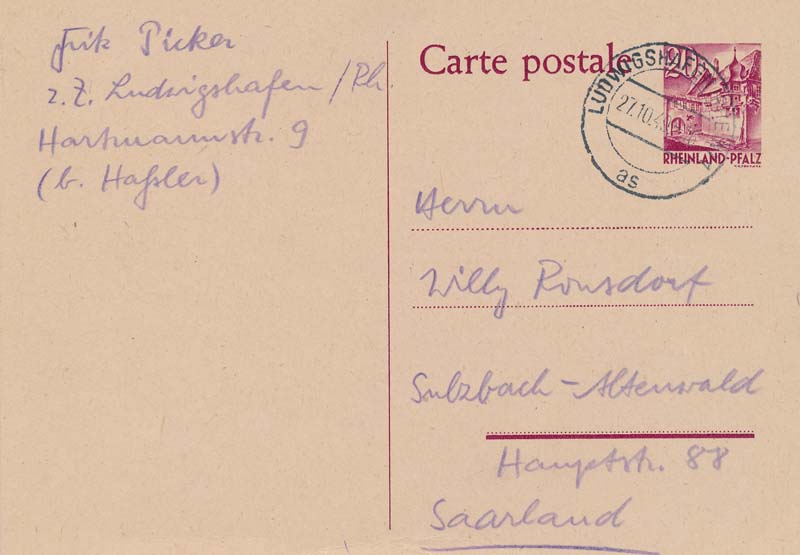 Fritz Picker
z. Z. Ludwigshafen / Rh.
Hartmannstr. 9
(b. Haßler)
Carte postale
LUDWIGSHAFEN
27.10.4
as
RHEINLAND-PFALZ
Herrn
Willy Ronsdorf
Sulzbach-Altenwald
Hauptstr. 88
Saarland